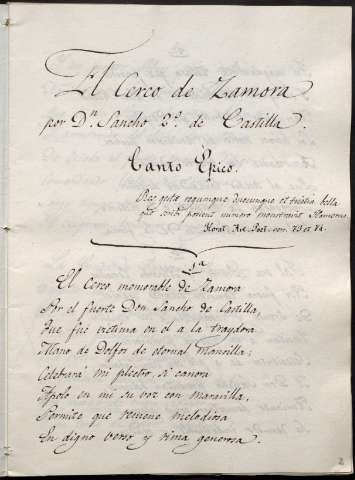 El Cerco de Zamora
por Dn. Sancho 2º. de Castilla.
Canto Epico.
Res gestæ regumque ducumque et tristia bella
quo scribi possent numero monstravit Homerus.
Horat. Art. Poet. ver. 73 et 74.
1ª
El Cerco memorable de Zamora
Por el fuerte Don Sancho de Castilla,
Que fué victima en el a la traydora
Mano de Dolfos de eternal mancilla;
Celebrará mi plectro si canora
Apolo en mi su voz con maravilla,
Permite que resuene melodiosa
En digno verso y rima generosa.
2